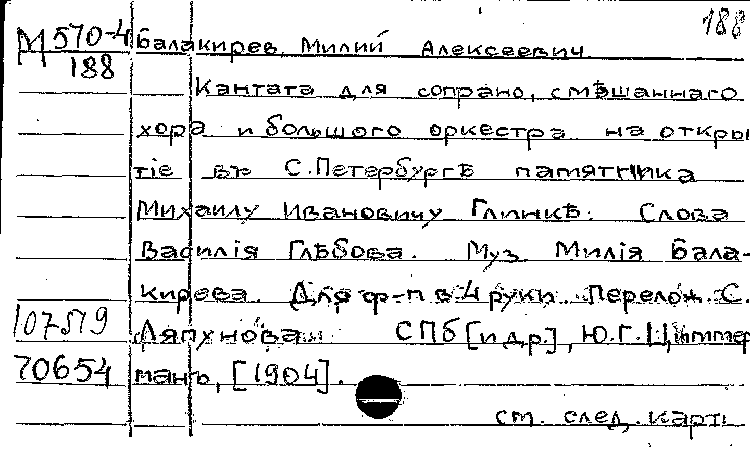 188
М 570-4 Балакирев, Милий Алексеевич
188
Кантата для сопрано, смѣшаннаго
хора и большого оркестра на откры
тіе въ С.Петербургѣ памятника
Михаилу Ивановичу Глинкѣ. Слова
Василія Глѣбова. Муз. Милія Бала-
кирева. Для ф-п в 4 руки. Перелож. С.
107519 Ляпунова СПб [и др.], Ю.Г. Циммер
70654 манъ, [1904].
см. след. карт.